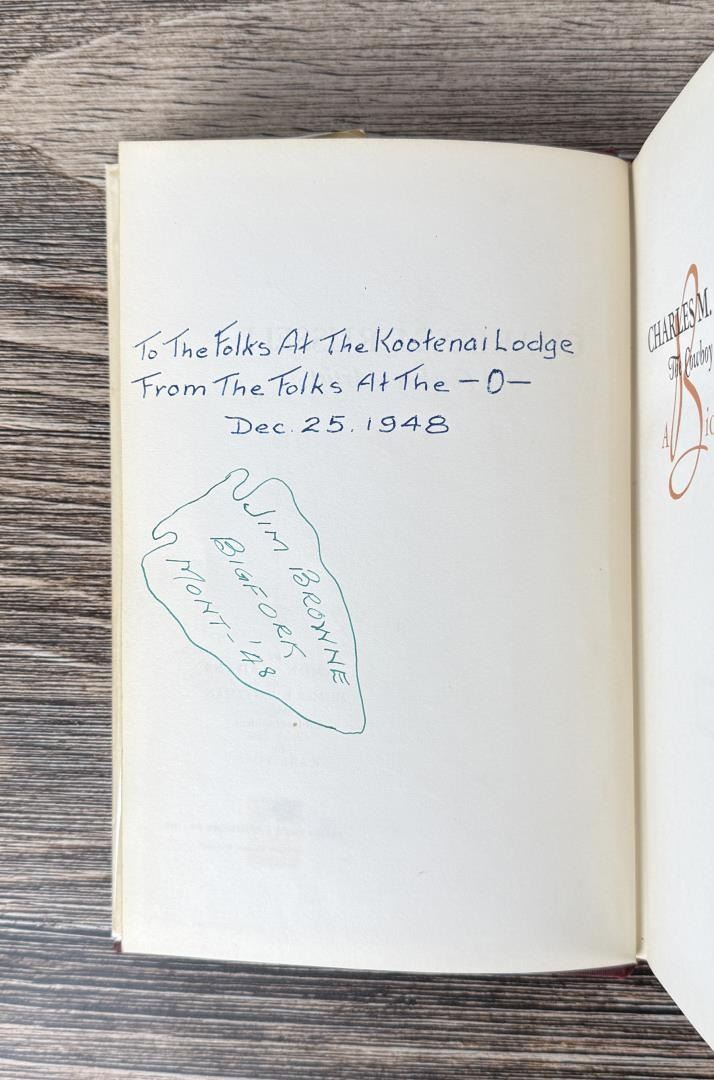 To The Folks At The Kootenai Lodge
From The Folks At The -O-
Dec. 25. 1948
JIM BROWNE
BIGFORK
MONT-'48
CHARLES M.
The Cowboy
A Bio